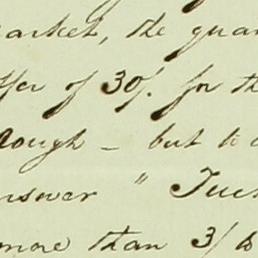 arket, the quan
ffer of 30/. for th
rough – but to a
nswer " Tuck
more than 3/ to